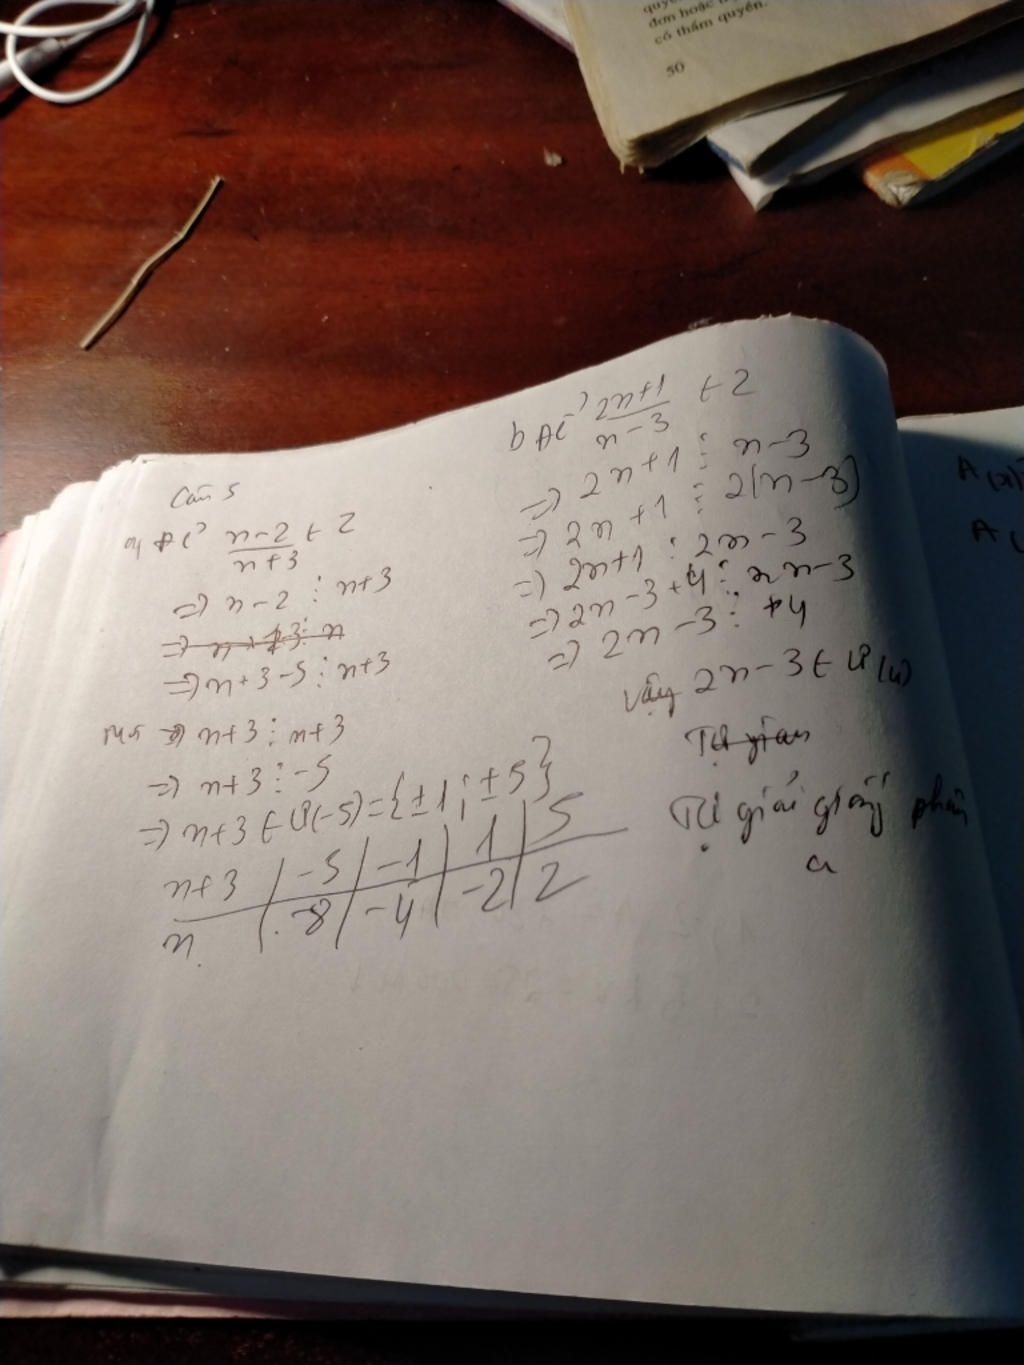 đơn hoặc
có thẩm quyền.
50
Câu 5
a) Để n-2/n+3 ∈ Z
=) n-2 ⋮ n+3
=) n+3-5 ⋮ n+3
=) n+3 ⋮ n+3
=) n+3 ⋮ -5
=) n+3 ∈ Ư(-5) = {±1; ±5}
n+3 | -5 | -1 | 1 | 5
n | -8 | -4 | -2 | 2
b Để 2n+1/n-3 ∈ Z
=) 2n+1 ⋮ n-3
=) 2n+1 ⋮ 2(n-3)
=) 2n+1 ⋮ 2n-3
=) 2n-3+4 ⋮ 2n-3
=) 2n-3 ⋮ +4
Vậy 2n-3 ∈ Ư(4)
Tự giải giống phần
a
A(x)
A(